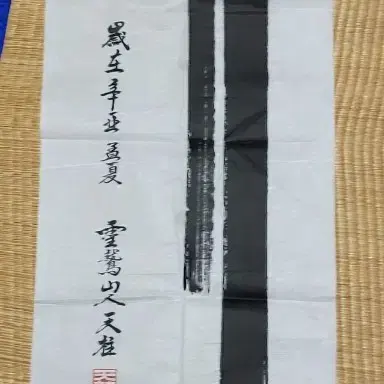 歲在辛丑孟夏 靈鷲山人天柱